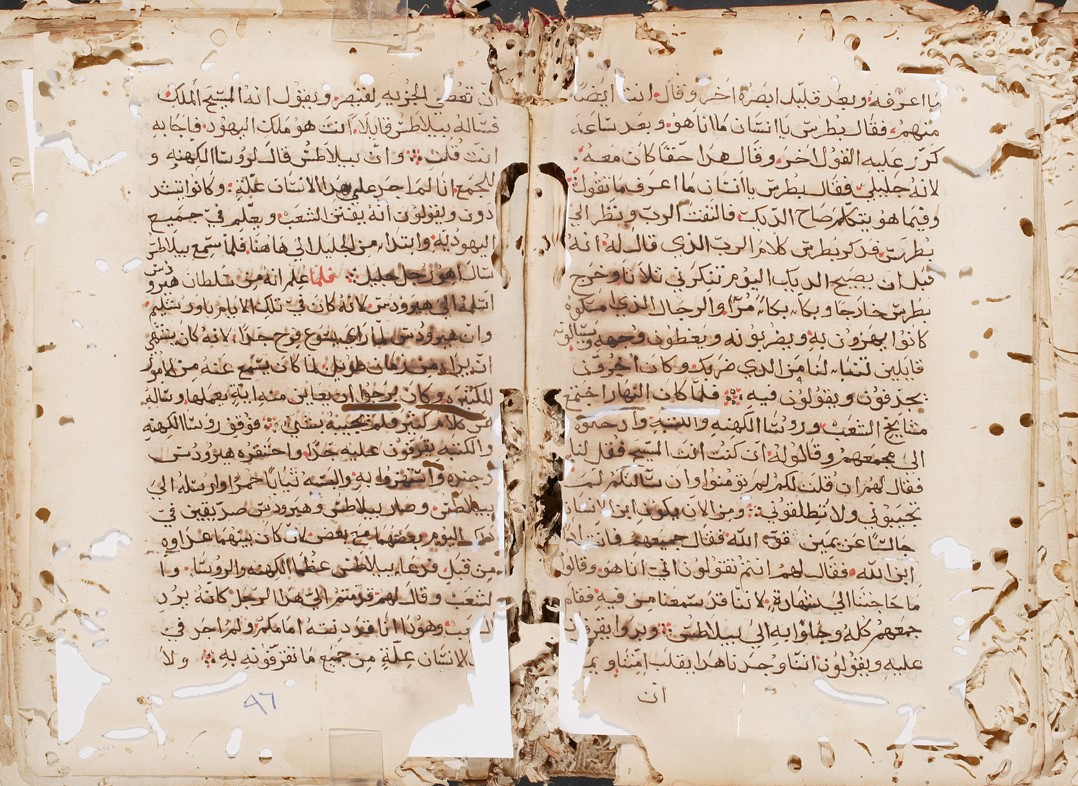 ما اعرفه وبعد قليل ابصره اخر وقال انت ايضا
منهم فقال بطرس يا انسان ما انا هو وبعد ساعة
كرر عليه القول اخر وقال هذا حقا كان معه
لانه جليلي فقال بطرس يا انسان ما اعرف ما تقول
وفيما هو يتكلم صاح الديك فالتفت الرب ونظر الى
بطرس فدكر بطرس كلام الرب الذي قال له انه
قبل ان يصيح الديك اليوم تنكرني ثلاثا وخرج
بطرس خارجا وبكا بكاً مُراً والرجال الذي امسكوه
كانوا يهزون به ويضربونه ويغطون وجهه ويسالونه
قايلين تنبا لنا من الذي ضربك وكان اخر وفي
يجدفون ويقولون فيه فلما كان النهار اجتمع
مشايخ الشعب وروسا الكهنه والكتبه وادخلوه
الى مجمعهم وقالوا له ان كنت انت المسيح فقل لنا
فقال لهم ان قلت لكم لم تومنوا وان سالتكم لم
تجيبوني ولا تطلقوني ومن الان يكون ابن الانسان
جالسا عن يمين قوة الله فقال جميعهم فانت
ابن الله فقال لهم انتم تقولون اني انا هو وقالوا
ما حاجتنا الى شهادة لاننا قد سمعنا من فيه فقام
جمعهم كله وجاوا به الى بيلاطس وبدوا يقرفون
عليه ويقولون اننا وجدنا هدا يقلب امتنا و
ان
ان تقطي الجزيه لقيصر ويقول انه المسيح الملك
فساله بيلاطس قايلا انت هو ملك اليهود فاجابه
انت قلت وان بيلاطس قال لروسا الكهنه و
الجمع انا لم اجد على هدا الانسان علة وكانوا يتشد
دون ويقولون انه يفتن الشعب ويعلم في جميع
اليهوديه وابتدا من الجليل الى هاهنا فلما سمع بيلاطس
سال اهو رجل جليلي فلما علم انه من سلطان هيرودس
ارسله الى هيرودس لانه كان في تلك الايام باورشليم
وان هيرودس لما راى يسوع فرح جدا لانه كان يشتهي
ان يراه من زمان طويل لما كان يسمع عنه من الامور
الكثيره وكان يرجوا ان يعاين منه اية يعملها وساله
عن كلام كثير فلم يجيبه بشي فوقف روسا الكهنه
والكتبه يقرفون عليه جدا واحتقره هيرودس
وجنده واستهزوا به والبسه ثيابا حمرا وارسله الى
بيلاطس وصار بيلاطس وهيرودس صديقين في
ذلك اليوم بعضهما مع بعض لانه كان بينهما عداوه
من قبل فدعا بيلاطس عظما الكهنه والروسا وا
لشعب وقال لهم قدمتم الي هدا الرجل كانه يرد
الشعب وهودا انا قد فتشه امامكم ولم اجد في
هذا الانسان علة من جميع ما تقرفونه به ولا
٩٦